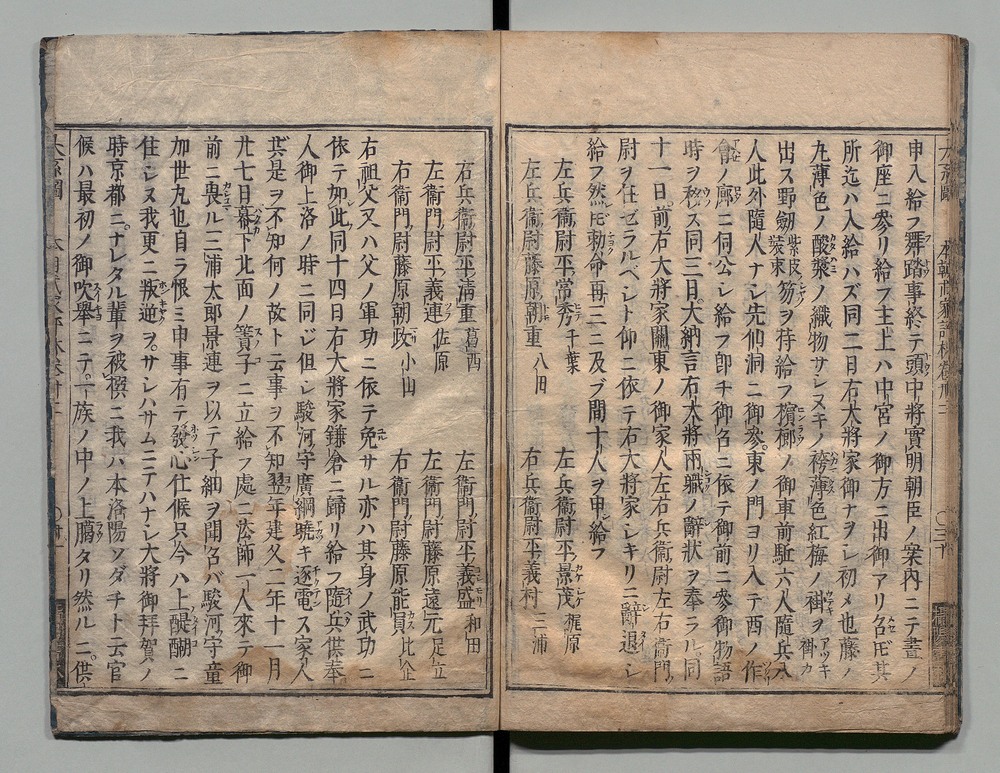 申入給フ舞踏事終テ頭中將實明朝臣ノ案内ニテ晝ノ
御座ニ參リ給フ主上ハ中宮ノ御方ニ出御アリ名ドモ其
所迄ハ入給ハズ同二日右大將家御ナヲシ初メ也藤ノ
九薄色ノ酸漿ノ織物サシヌキノ袴薄色紅梅ノ褂ヲ
出ス野劔紫皮裝束笏ヲ待給フ檳榔ノ御車前駈六人隨兵八
人此外隨人ナシ先仙洞ニ御參東ノ門ヨリ入テ酉ノ作
合ノ廊ニ伺公シ給フ即チ御召ニ依テ御前ニ參御物語
時ヲ移ス同三日大納言右大將兩職ノ辭狀ヲ奉ラル同
十一日前右大將家關東ノ御家人左右兵衞尉左右衞門
尉ヲ任ゼラルベシト仰ニ依テ右大將家レキリニ辭退シ
給フ然ドモ勅命再三ニ及ブ間十人ヲ申給フ
左兵衞尉平常秀千葉 左兵衞尉平景茂梶原
左兵衞尉藤原朝重八田 右兵衞尉平義村三浦
右兵衞尉平清重葛西 左衞門尉平義盛和田
左衞門尉平義連佐原 左衞門尉藤原遠元足立
右衞門尉藤原朝政小山 右衞門尉藤原能員比企
右祖父又ハ父ノ軍功ニ依テ免サル亦ハ其身ノ武功ニ
依テ如此同十四日右大將家鎌倉ニ歸リ給フ隨兵供奉
人御上洛ノ時ニ同ジ但シ駿河守廣綱曉キ逐電ス家人
其是ヲ不知何ノ故ト云事ヲ不知翌年建久二年十一月
廿七日幕下北面ノ簀子ニ立給フ處ニ法師一人來テ御
前ニ畏ル三浦太郎景連ヲ以テ子細ヲ問名バ駿河守童
加世丸也自ラ恨ミ申事有テ發心仕候只今ハ上醍醐ニ
住シヌ我更ニ叛逆ヲサシハサムニテハナシ大將御拜賀ノ
時京都ニナレタル輩ヲ被撰ニ我ハ本洛陽ソダチト云官
候ハ最初ノ御吹擧ニテ一族ノ中ノ上﨟タリ然ルニ供